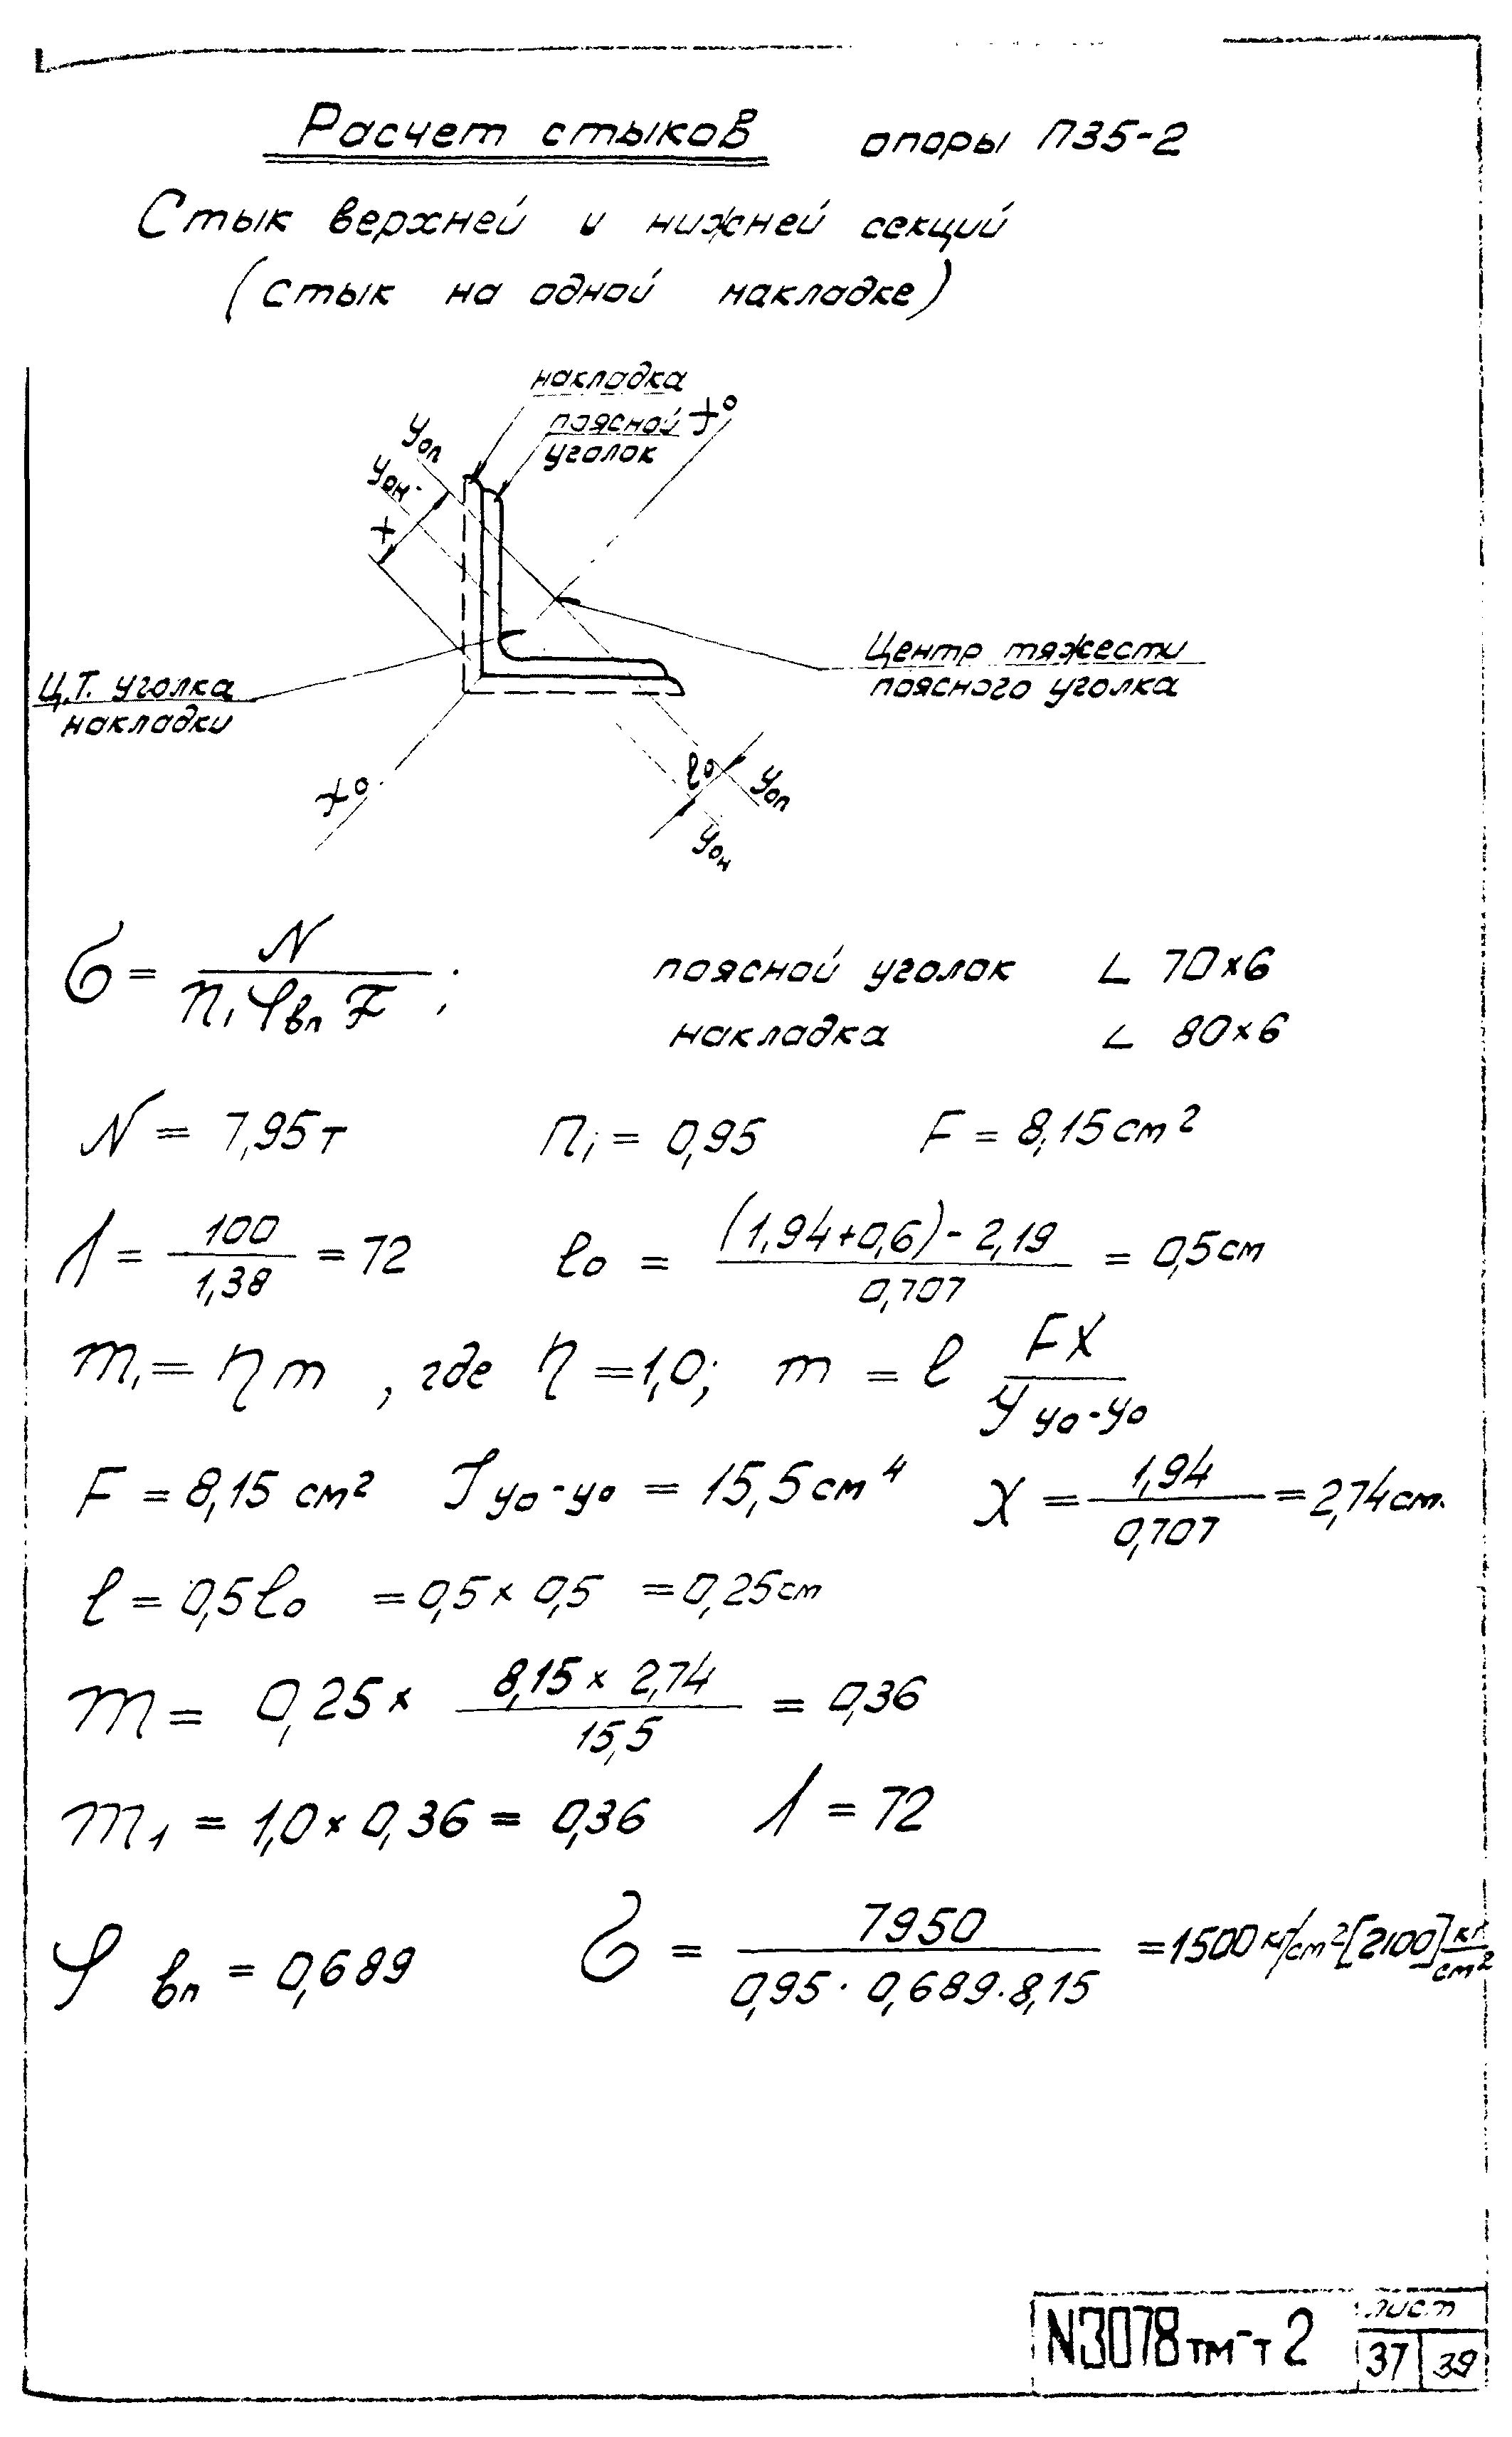 Расчет стыков опоры П35-2
Стык верхней и нижней секций
(стык на одной накладке)
накладка
поясной
уголок
xo
Yоп
Yон
x
Центр тяжести
поясного уголка
Ц.Т. уголка
накладки
xo
lo
Yоп
Yон
σ = N / (n₁ φвп F) ;
поясной уголок ∟ 70×6
накладка ∟ 80×6
N = 7,95т n₁ = 0,95 F = 8,15 см²
λ = 100 / 1,38 = 72 lo = ((1,94+0,6) - 2,19) / 0,707 = 0,5 см
m₁ = η m , где η = 1,0; m = l FX / Yyo-yo
F = 8,15 см² Jyo-yo = 15,5 см⁴ X = 1,94 / 0,707 = 2,74 см.
l = 0,5 lo = 0,5 × 0,5 = 0,25 см
m = 0,25 × (8,15 × 2,74) / 15,5 = 0,36
m₁ = 1,0 × 0,36 = 0,36 λ = 72
φвп = 0,689 σ = 7950 / (0,95 · 0,689 · 8,15) = 1500 кг/см² [2100] кг/см²
N3078тм-т2
лист
37 39